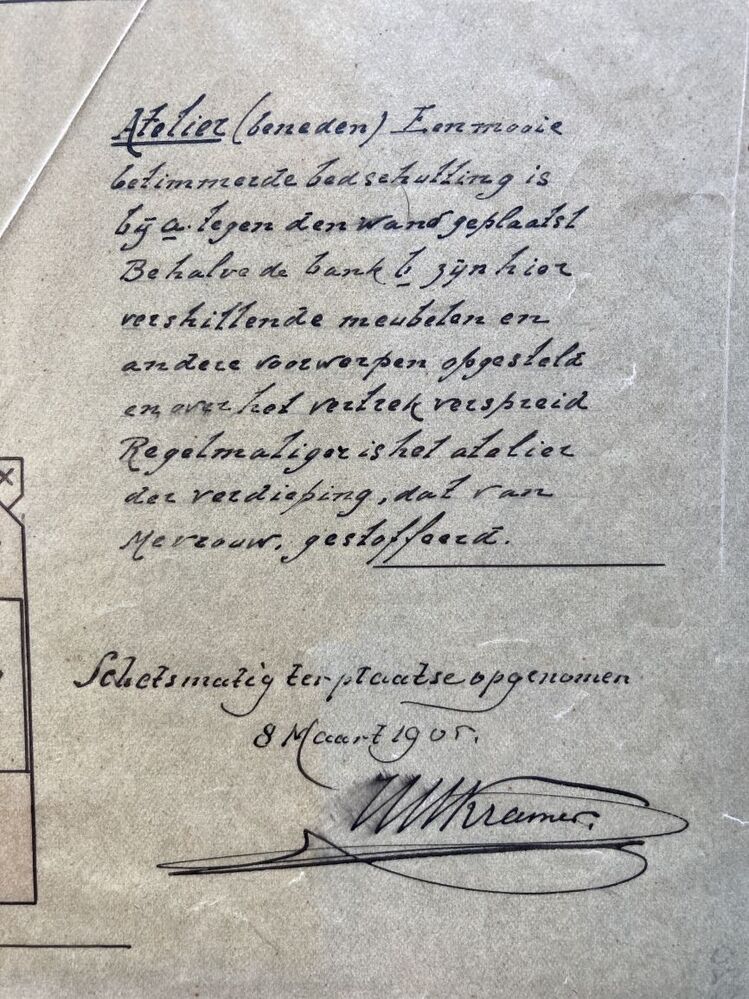 Atelier (beneden) Een mooie
betimmerde bedschutting is
bij a. tegen den wand geplaatst
Behalve de bank b zijn hier
vershillende meubelen en
andere voorwerpen opgesteld
en over het vertrek verspreid
Regelmatiger is het atelier
der verdieping, dat van
Mevrouw, gestoffeerd.
Schetsmatig ter plaatse opgenomen
8 Maart 1905.
Kramer.